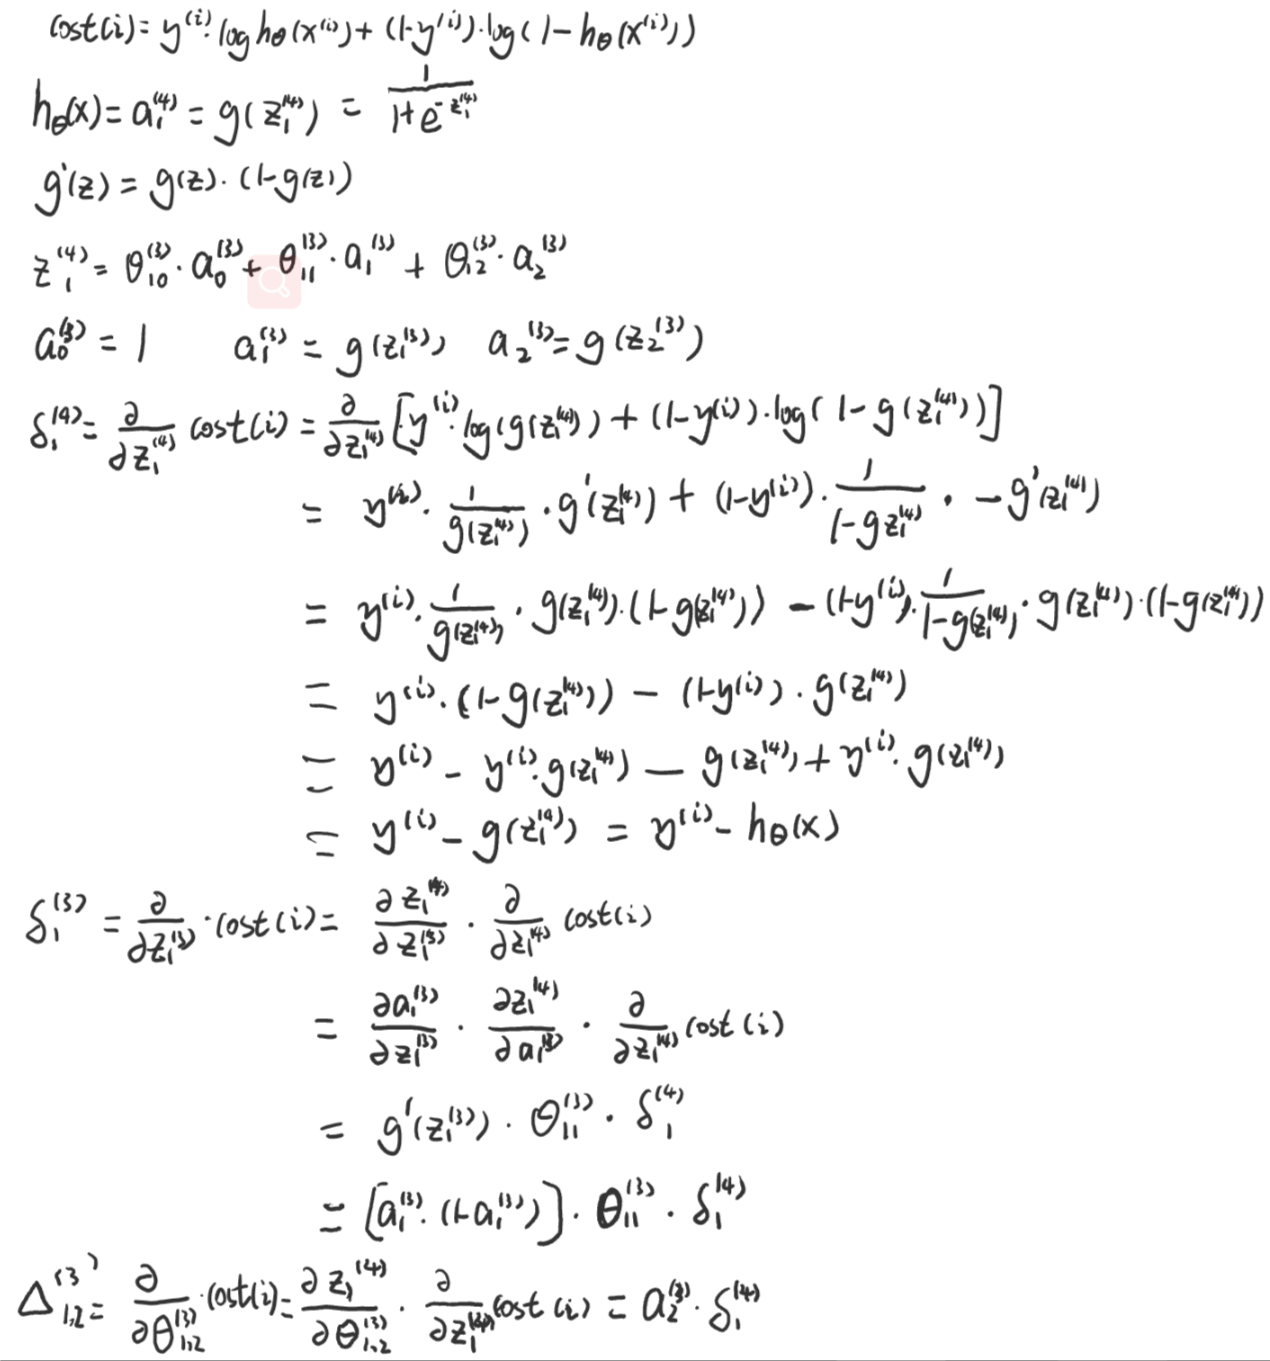 cost(i) = y^(i)·log hθ(x^(i)) + (1-y^(i))·log(1-hθ(x^(i)))
hθ(x) = a₁^(4) = g(z₁^(4)) = 1/(1+e^(-z₁^(4)))
g'(z) = g(z)·(1-g(z))
z₁^(4) = θ₁₀^(3)·a₀^(3) + θ₁₁^(3)·a₁^(3) + θ₁₂^(3)·a₂^(3)
a₀^(3) = 1   a₁^(3) = g(z₁^(3))   a₂^(3) = g(z₂^(3))
δ₁^(4) = ∂/∂z₁^(4) cost(i) = ∂/∂z₁^(4) [y^(i)·log(g(z₁^(4))) + (1-y^(i))·log(1-g(z₁^(4)))]
= y^(i)·1/g(z₁^(4))·g'(z₁^(4)) + (1-y^(i))·1/(1-g z₁^(4))·-g'(z₁^(4))
= y^(i)·1/g(z₁^(4))·g(z₁^(4))·(1-g(z₁^(4))) - (1-y^(i))·1/(1-g(z₁^(4)))·g(z₁^(4))·(1-g(z₁^(4)))
= y^(i)·(1-g(z₁^(4))) - (1-y^(i))·g(z₁^(4))
= y^(i) - y^(i)·g(z₁^(4)) - g(z₁^(4)) + y^(i)·g(z₁^(4))
= y^(i) - g(z₁^(4)) = y^(i) - hθ(x)
δ₁^(3) = ∂/∂z₁^(3)·cost(i) = ∂z₁^(4)/∂z₁^(3) · ∂/∂z₁^(4) cost(i)
= ∂a₁^(3)/∂z₁^(3) · ∂z₁^(4)/∂a₁^(3) · ∂/∂z₁^(4) cost(i)
= g'(z₁^(3))·θ₁₁^(3)·δ₁^(4)
= [a₁^(3)·(1-a₁^(3))]·θ₁₁^(3)·δ₁^(4)
Δ₁,₂^(3) = ∂/∂θ₁,₂^(3)·cost(i) = ∂z₁^(4)/∂θ₁,₂^(3) · ∂/∂z₁^(4) cost(i) = a₂^(3)·δ₁^(4)